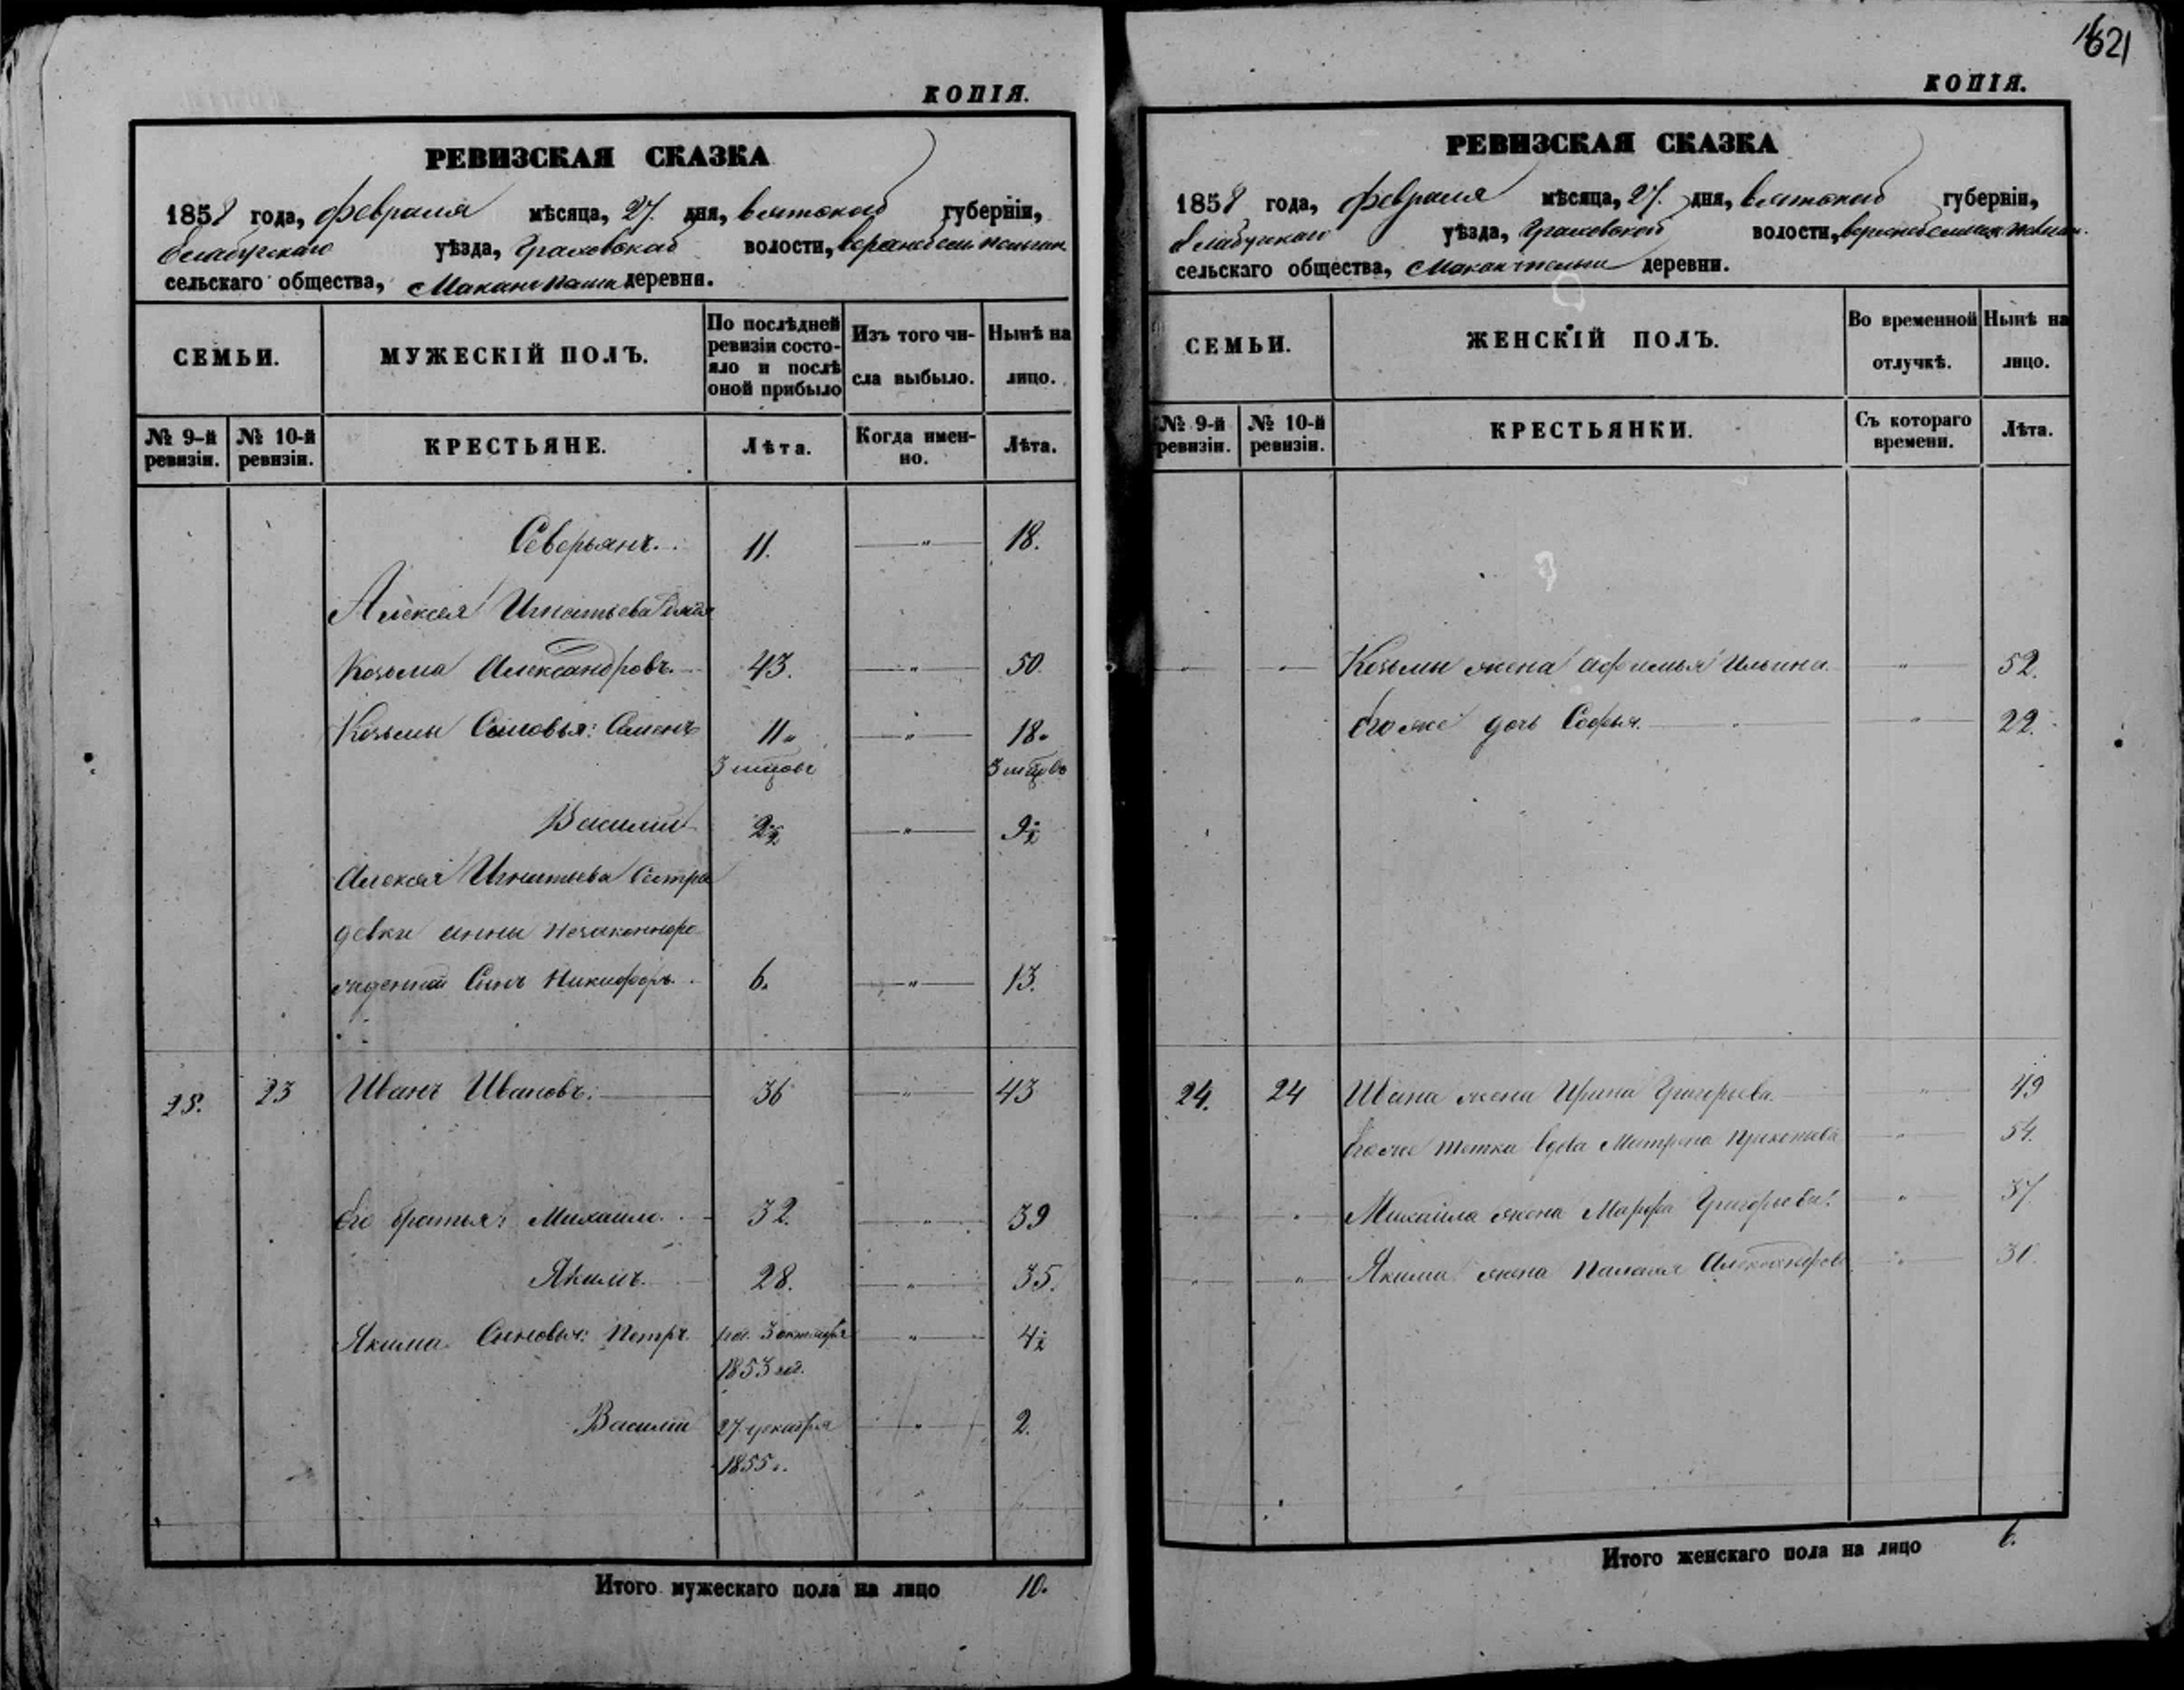 1621
КОПІЯ.
РЕВИЗСКАЯ СКАЗКА
1858 года, февраля мѣсяца, 27. дня, вятской губерніи,
елабугскаго уѣзда, Граховской волости,
сельскаго общества, деревни.
СЕМЬИ.
МУЖЕСКІЙ ПОЛЪ.
По послѣдней ревизіи состояло и послѣ оной прибыло
Изъ того числа выбыло.
Нынѣ на лицо.
№ 9-й ревизіи.
№ 10-й ревизіи.
КРЕСТЬЯНЕ.
Лѣта.
Когда именно.
Лѣта.
Северьянъ. 11. — " — 18.
Алексея Игнатьева дядя
Козьма Александровъ. 43. — " — 50.
Козьмы Сыновья: Семенъ 11. — " — 18.
Василий 2½ — " — 9½
Алексея Игнатьева Сестры
девки анны незаконноро
жденный Сынъ Никифоръ. 6. — " — 13.
25. 23 Иванъ Ивановъ. 36 — " — 43
Его братья: Михаило. 32. — " — 39
Якимъ. 28. — " — 35.
Якима Сыновья: Петръ. 3 октября — " — 4½
1853 год.
Василий 27 декабря — " — 2.
1855 г.
Итого мужескаго пола на лицо 10.
КОПІЯ.
РЕВИЗСКАЯ СКАЗКА
1858 года, февраля мѣсяца, 27. дня, вятской губерніи,
елабугскаго уѣзда, Граховской волости,
сельскаго общества, деревни.
СЕМЬИ.
ЖЕНСКІЙ ПОЛЪ.
Во временной отлучкѣ.
Нынѣ на лицо.
№ 9-й ревизіи.
№ 10-й ревизіи.
КРЕСТЬЯНКИ.
Съ котораго времени.
Лѣта.
Козьмы жена Афимья Ильина. " 52.
Его же дочь Софья. " 22.
24. 24 Ивана жена Ирина Григорьева. " 49
Его же тетка вдова Матрена " 54.
Михаила жена Марфа Григорьева. " 37
Якима жена Палагея Александрова " 30.
Итого женскаго пола на лицо 6.